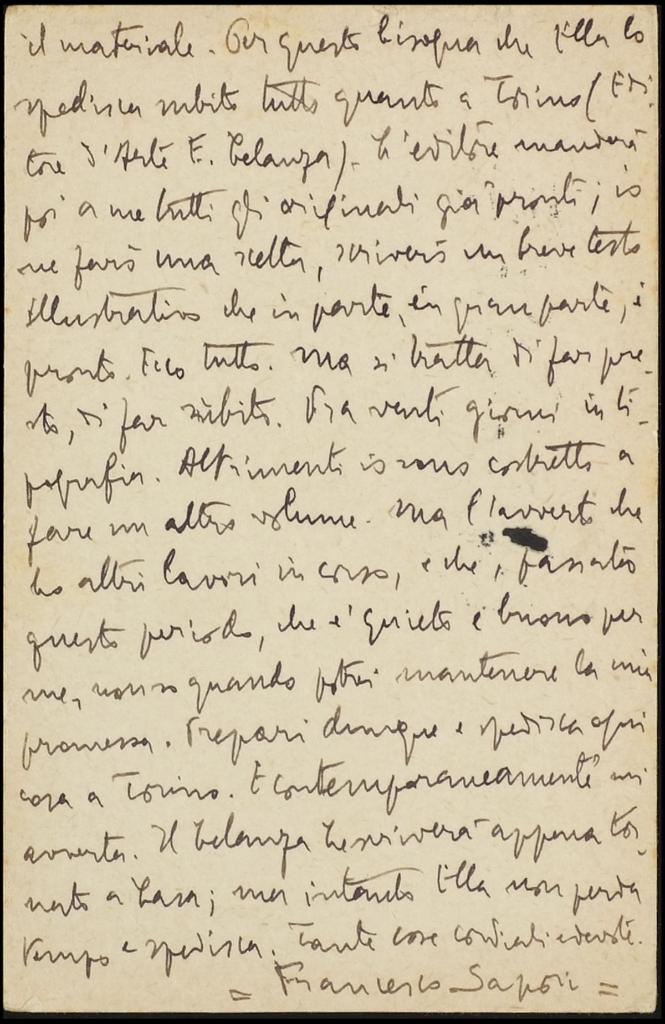 il materiale. Per questo bisogna che Ella lo
spedisca subito tutto quanto a Torino (Edi-
tore d'Arte E. Celanza). L'editore manderà
poi a me tutti gli originali già pronti; io
ne farò una scelta, scriverò un breve testo
illustrativo che in parte, in gran parte, è
pronto. Ecco tutto. Ma si tratta di far pre-
sto, di far subito. Fra venti giorni in ti-
pografia. Altrimenti io sono costretto a
fare un altro volume. Ma l'avverto che
ho altri lavori in corso, e che, passato
questo periodo, che è quieto e buono per
me, non so quando potrei mantenere la mia
promessa. Prepari dunque e spedisca ogni
cosa a Torino. E contemporaneamente mi
avverta. Il Celanza Le scriverà appena tor-
nato a Casa; ma intanto Ella non perda
tempo e spedisca. Tante cose cordiali e devote.
= Francesco Sapori =